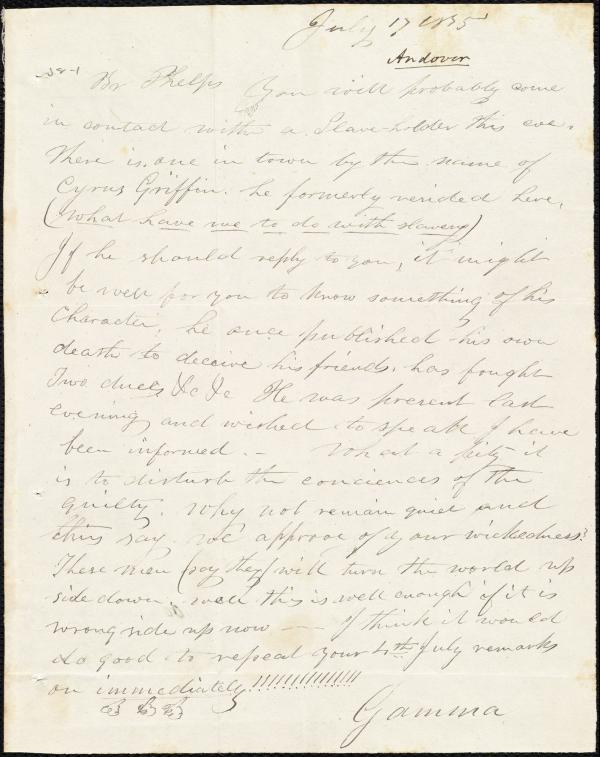 July 17 1835
Andover
Br Phelps You will probably come
in contact with a Slave-holder this eve.
There is one in town by the name of
Cyrus Griffin. he formerly resided here.
(What have we to do with slavery)
If he should reply to you, it might
be well for you to know something of his
Character; he once published his own
death to deceive his friends. has fought
Two duels &c &c He was present last
evening and wished to speak I have
been informed. – What a pity it
is to disturb the conciences of the
guilty. Why not remain quiet and
thus say we approve of your wickedness?
These men (say they) will turn the world up
side down. well this is well enough if it is
wrong side up now — I think it would
do good to repeat your 4th July remarks
on immediately!!!!!!!!!!!!!!!
Gamma